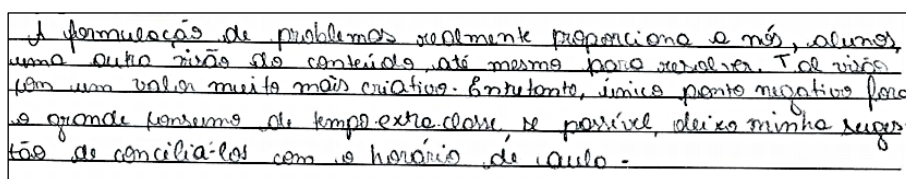 A formulação de problemas realmente proporciona a nós, alunos,
uma outra visão do conteúdo, até mesmo para resolver. Tal visão
tem um valor muito mais criativo. Entretanto, único ponto negativo fora
o grande consumo de tempo extra-classe, se possível, deixo minha suges-
tão de conciliá-los com o horário de aula.